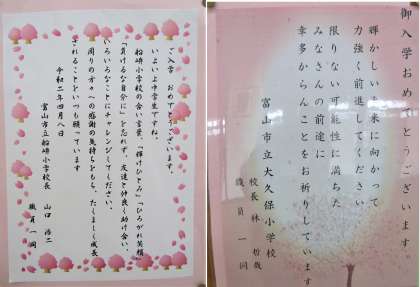 ご入学 おめでとうございます。
いよいよ中学生ですね。
船峅小学校の合い言葉、「輝けひとみ」「ひろがれ笑顔」
「負けるな自分に」を忘れず、友達と仲良く助け合い、
いろいろなことにチャレンジしてください。
周りの方々への感謝の気持ちをもち、たくましく成長
されることをいつも願っています
令和二年四月八日
富山市立船峅小学校長 山口 浩二
職員一同
御入学おめでとうございます。
輝かしい未来に向かって
力強く前進してください
限りない可能性に満ちた
みなさんの前途に
幸多からんことをお祈りしています
富山市立大久保小学校
校長 林 哲哉
職員一同